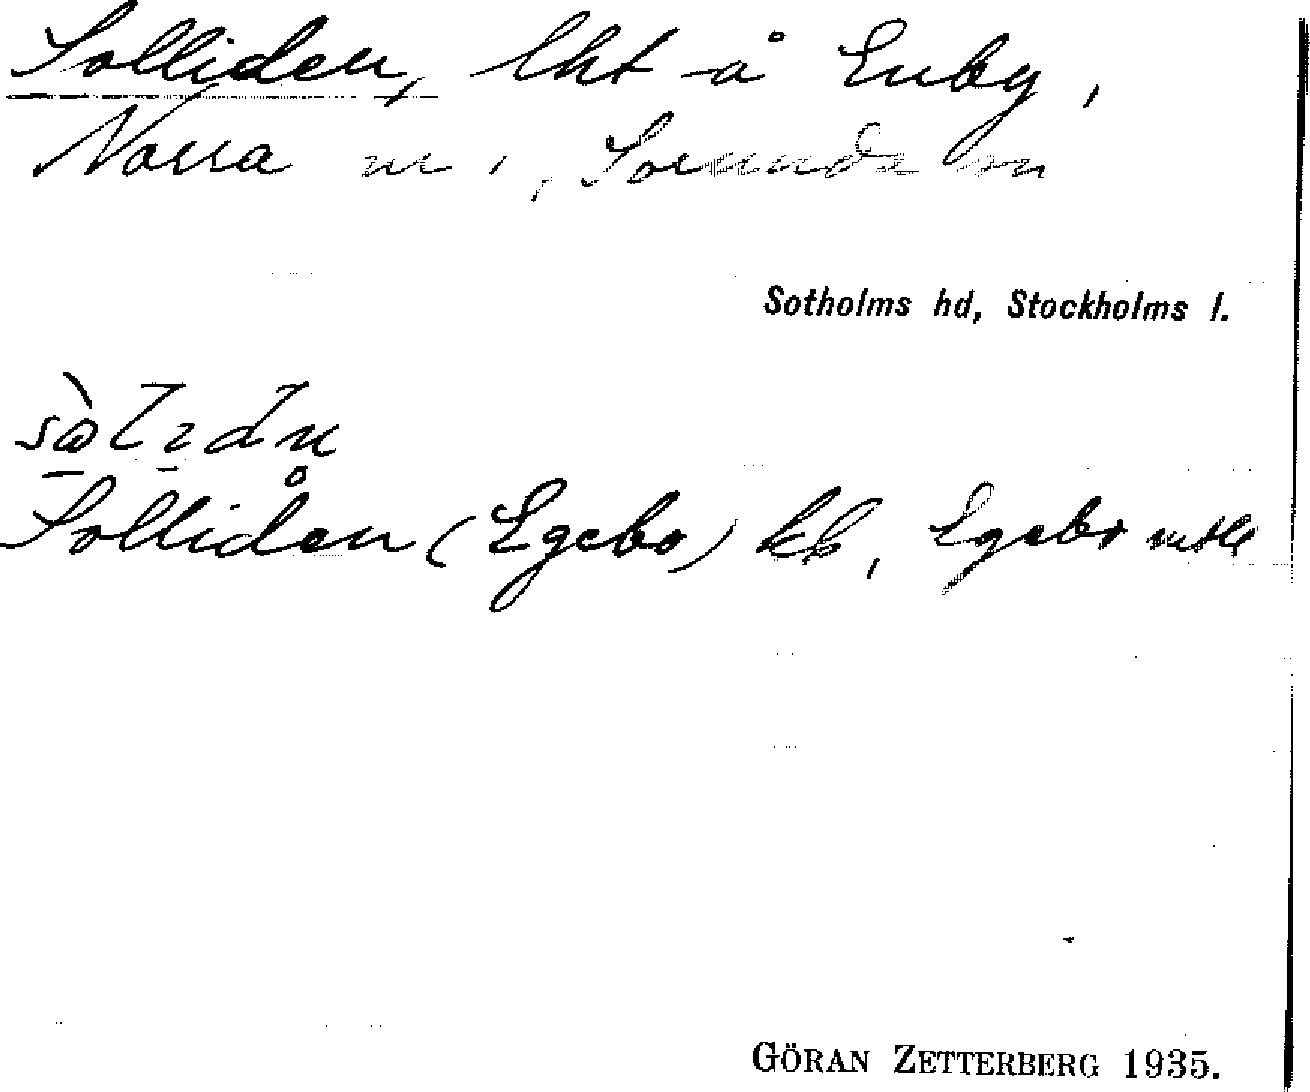 Solliden, lht å Enby,
Norra m., Sorunda sn
Sotholms hd, Stockholms l.
Solliden (Egebo) kb, Egebo
GÖRAN ZETTERBERG 1935.